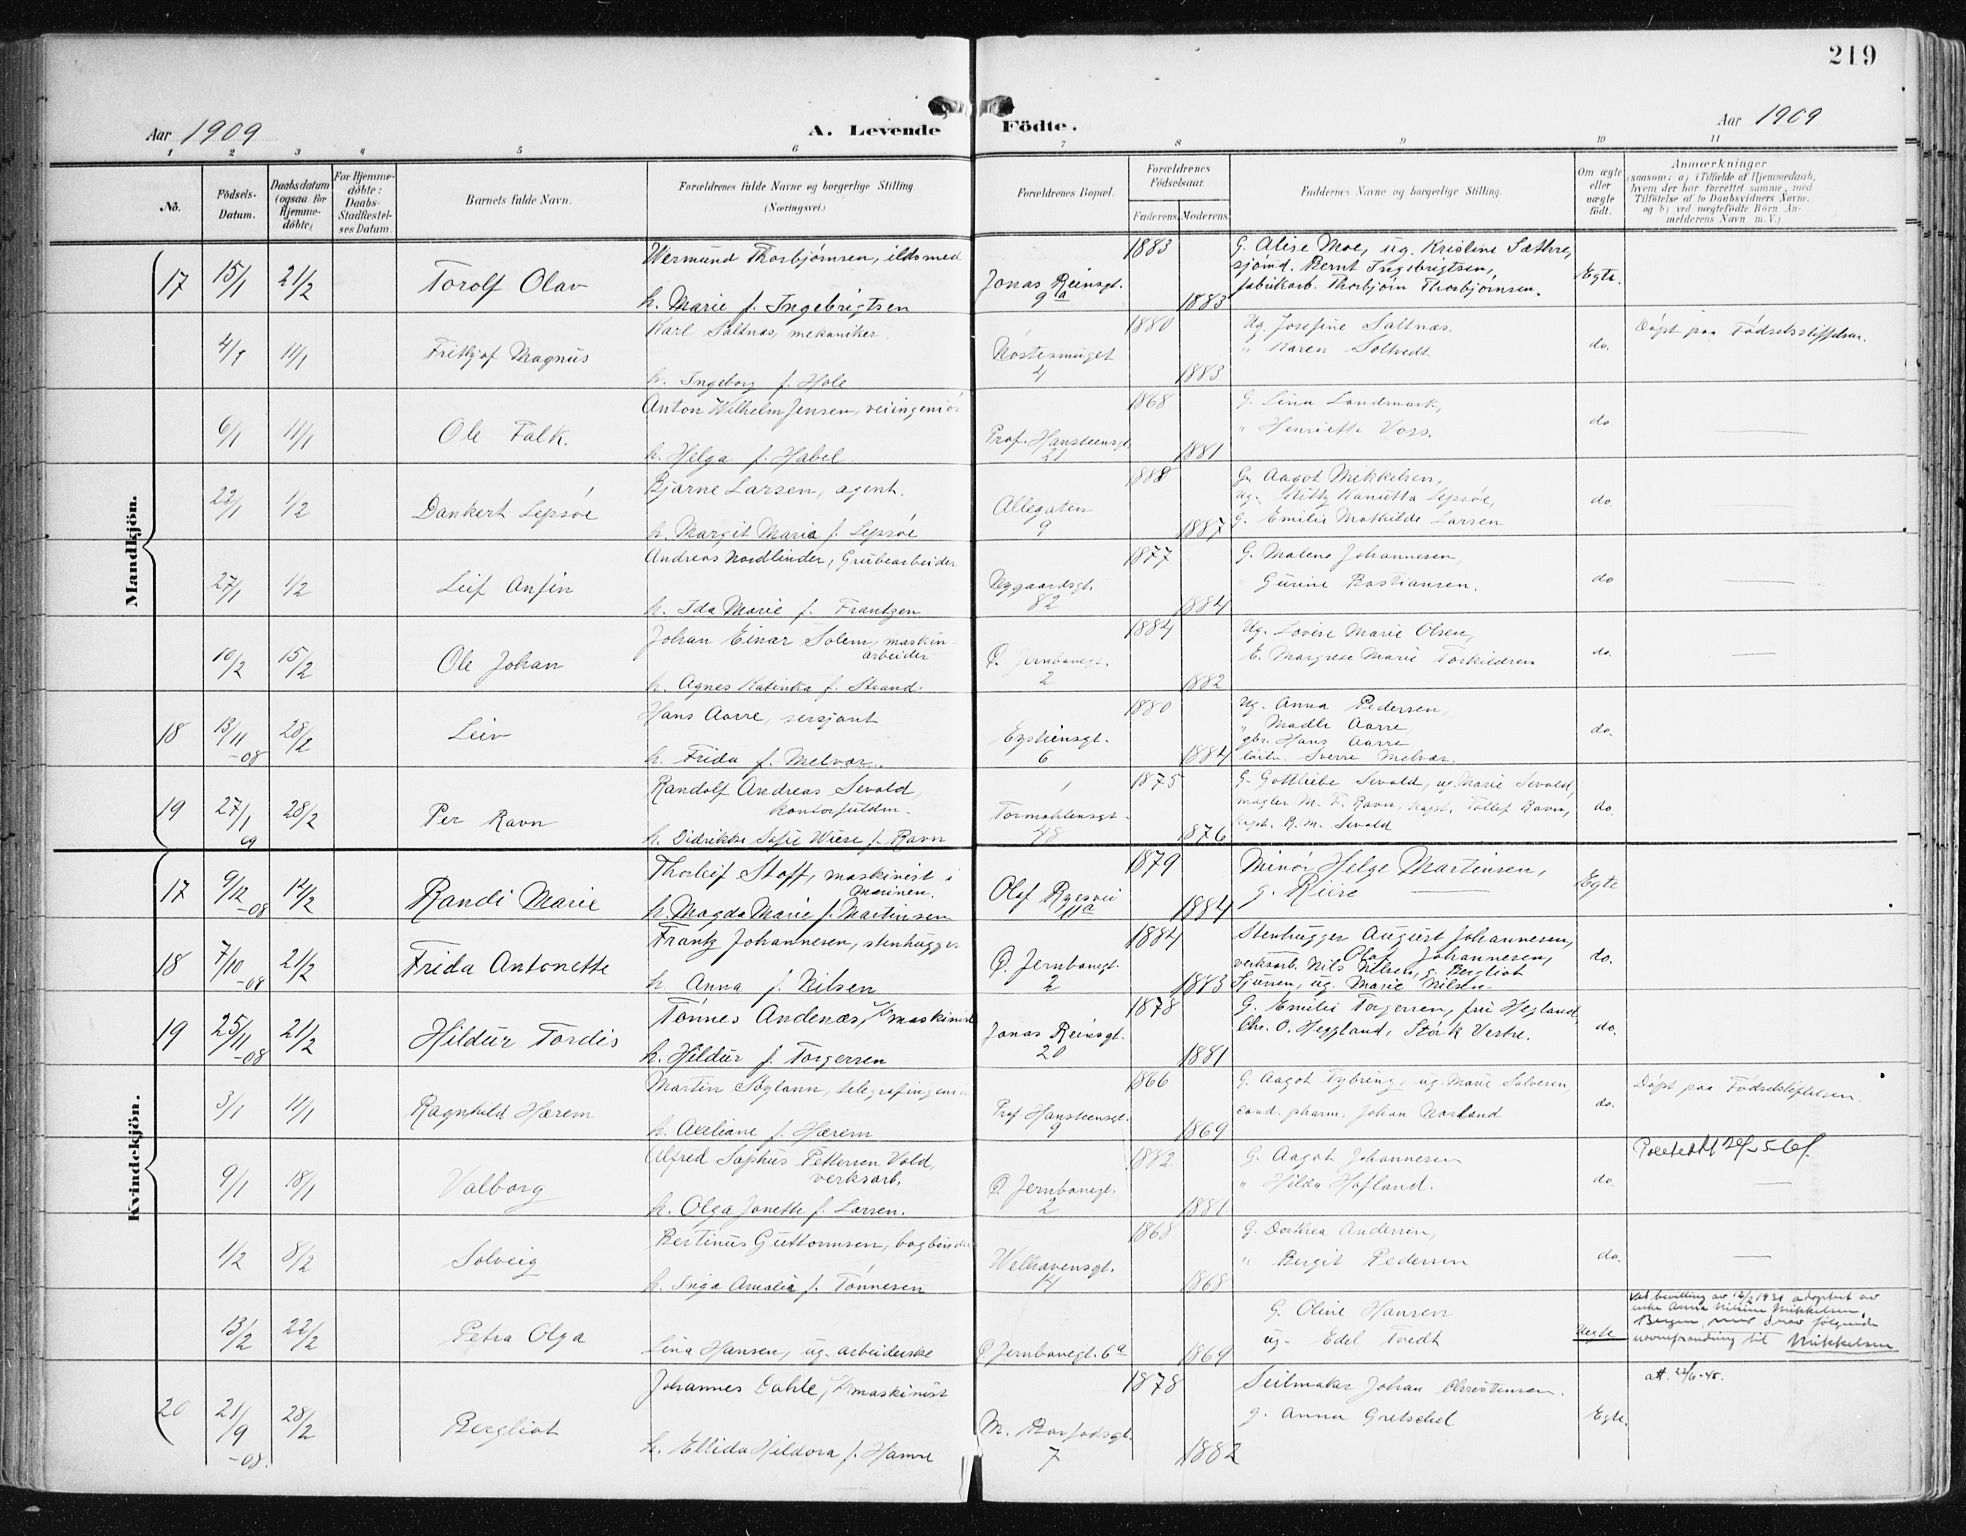 219
Aar 1909
A. Levende Födte.
Aar 1909
1 2 3 4 5 6 7 8 9 10 11
No.
Födsels-
Datum.
Daabsdatum
(ogsaa for
Hjemme-
döbte)
For Hjemme-
döbte:
Daabs-
Stadfæstel-
ses Datum.
Barnets fulde Navn.
Forældrenes fulde Navne og borgerlige Stilling.
(Næringsvei.)
Forældrenes Bopæl.
Forældrenes
Födselsaar.
Faderens Moderens
Faddernes Navne og borgerlige Stilling.
Om ægte
eller
uægte
födt.
Anmærkninger
(saasom: a) i Tilfælde af Hjemmedaab,
hvem der har forrettet samme, med
Tilföielse af to Daabsvidners Navne,
og b) ved uægtefödte Börn An-
melderens Navn m. V.)
Mandkjön.
17 15/1 21/2 Torolf Olav
Wermund Thorbjørnsen, ildsmed
h. Marie f. Ingebrigtsen
Jonas Reinsgt.
9a
1883
1883
G. Alise Moe, ug. Kristine Sæthre,
sjømd. Bernt Ingebrigtsen,
fabrikarb. Thorbjørn Thorbjørnsen.
Egte.
4/1 11/1 Frithjof Magnus
Karl Saltnæs, mekaniker.
h. Ingeborg f. Hole
Nøstesmuget
4
1880
1883
Ug. Josefine Saltnæs.
" Karen Soltvedt
do.
Døpt paa Fødselsstiftelsen.
6/1 11/1 Ole Falk.
Anton Wilhelm Jensen, veiingeniør
h. Helga f. Habel.
Prof. Hansteensgt.
21
1868
1881
G. Lina Landmark,
" Henriette Voss.
do.
22/1 1/2 Dankert Lepsøe
Bjarne Larsen, agent.
h. Margit Maria f. Lepsøe
Allegaten
9
1888
1887
G. Aagot Mikkelsen,
ug. Kitty Kanutta Lepsøe,
G. Emilie Mathilde Larsen
do.
27/1 1/2 Leif Anfin
Andreas Nordlinder, Grubearbeider
h. Ida Marie f. Frantzen
Nygaardsgt.
82
1877
1884
G. Malene Johannesen,
Gurine Bastiansen.
do
10/2 15/2 Ole Johan
Johan Einar Solem, maskin-
arbeider
h. Agnes Katinka f. Strand.
Ø. Jernbanegt.
2
1884
1882
Ug. Lovise Marie Olsen,
E. Margrete Marie Torkildsen
do.
18 13/11 -08 28/2 Leiv
Hans Aarre, sersjant
h. Frida f. Melvær.
Eystiensgt.
6
1880
1884
Ug. Anna Pedersen,
" Madli Aarre,
gbr. Hans Aarre
løitn. Sverre Melvær.
do.
19 27/1 09 28/2 Per Ravn
Randolf Andreas Sevald,
kontorfuldm.
h. Didrikke Sofie Wiese f. Ravn
Tormøhlensgt.
48
1875
1876
G. Gottliebe Sevald, ug. Marie Sevald,
mægler M. F. Ravn, kapt. Tollef Ravn,
kapt. R. M. Sevald
do.
Kvindekjön.
17 9/12 -08 14/2 Randi Marie
Thorleif Stoff, maskinist i
marinen.
h. Magda Marie f. Martinsen
Olaf Ryesvei
11a
1879
1884
Minør Helge Martinsen,
g. Riise
Egte
18 7/10 -08 21/2 Frida Antonette
Frantz Johannesen, stenhugger
h. Anna f. Nilsen
Ø. Jernbanegt.
2
1884
1883
Stenhugger August Johannesen,
Olaf Johannesen,
verksarb. Nils Nilsen, g. Bergliot
Sjursen, ug. Marie Nilsen.
do.
19 25/11 -08 21/2 Hildur Tordis
Tønnes Andenæs, maskinist
h. Hildur f. Torgersen
Jonas Reinsgt.
20
1878
1881
G. Emilie Torgersen, fru Hegland,
Chr. O. Heggland, Størk Vestre.
do.
3/1 11/1 Ragnhild Hærem
Martin Søyland, telegrafingeniør
h. Axeliane f. Hærem
Prof Hansteensgt.
9
1866
1869
G. Aagot Tybring, ug. Marie Salvesen,
cand. pharm. Johan Nosland
do.
Døpt paa Fødselsstiftelsen.
9/1 18/1 Valborg
Alfred Sophus Pettersen Vold,
verksarb.
h. Olga Jonette f. Larsen.
Ø. Jernbanegt.
2
1882
1881
G. Aagot Johannesen
" Hilda Hofland.
do.
1/2 8/2 Solveig
Bertinus Guttormsen, bogbinder
h. Inga Amalia f. Tønnesen
Welhavensgt.
14
1868
1868
G. Dorthea Andersen,
" Bergit Pedersen
do.
13/2 22/2 Petra Olga
Lina Hansen, ug. arbeiderske
Ø. Jernbanegt. 6a
1869
G. Oline Hansen
ug. Edel Tvedt
Uegte
Ved bevilling av 12/2 1931 adoptert av
enke Anna Nilsine Mikkelsen,
Bergen, med derav følgende
navneforandring til Mikkelsen
20 21/9 -08. 28/2 Bergliot
Johannes Dahle, maskinist
h. Ellida Hildora f. Hamre
M. Barfodsgt.
7
1878
1882
Seilmaker Johan Christensen.
g. Anna Gretschel
Egte.
att. 22/6-45.